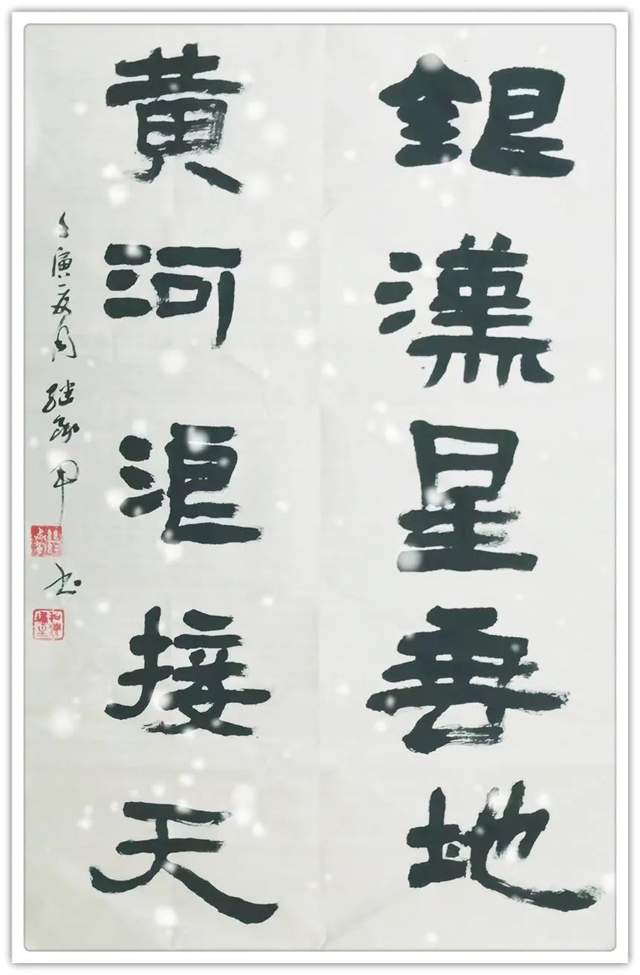 銀漢星垂地
黄河浪接天
壬寅夏月 书